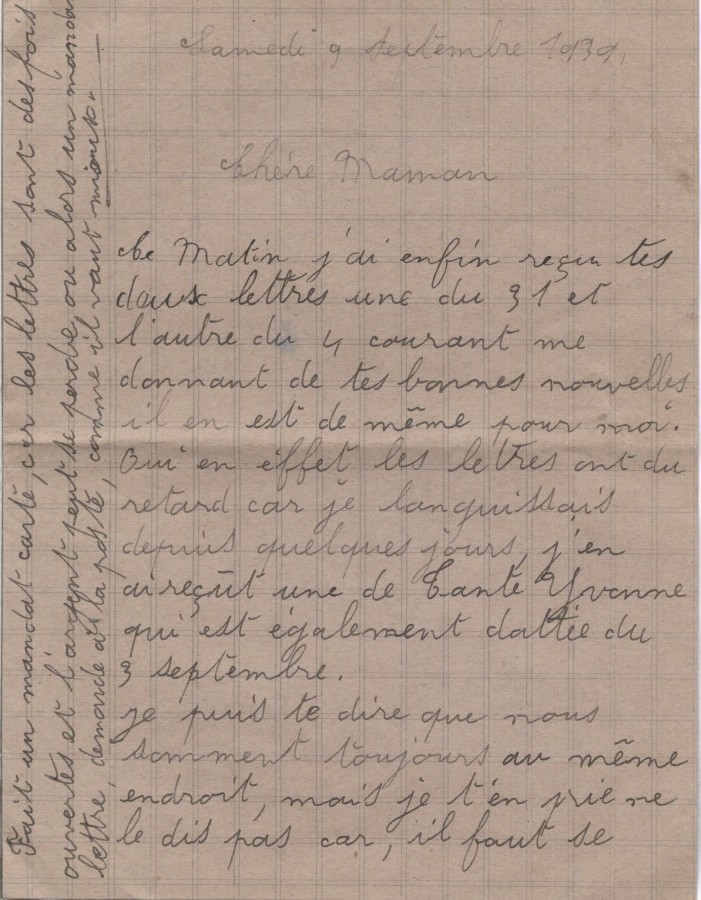 Samedi 9 septembre 1939.
Chère Maman
Ce Matin j'ai enfin reçu tes
deux lettres une du 31 et
l'autre du 4 courant me
donnant de tes bonnes nouvelles
il en est de même pour moi.
Oui en effet les lettres ont du
retard car je languissais
depuis quelques jours, j'en
ai reçût une de Tante Yvonne
qui est également dattée du
3 septembre.
je puis te dire que nous
somment toujours au même
endroit, mais je t'en prie ne
le dis pas car, il faut se
Fait un mandat carte, car les lettres sont des fois
ouvertes et l'argent peut se perdre, ou alors un mandat
lettre, demande à la poste, comme il vaut mieux.